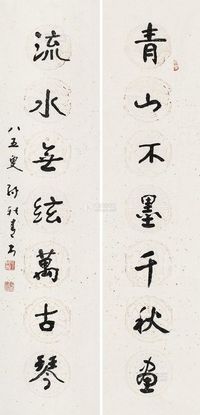 青山不墨千秋画
流水無絃萬古琴
八五叟